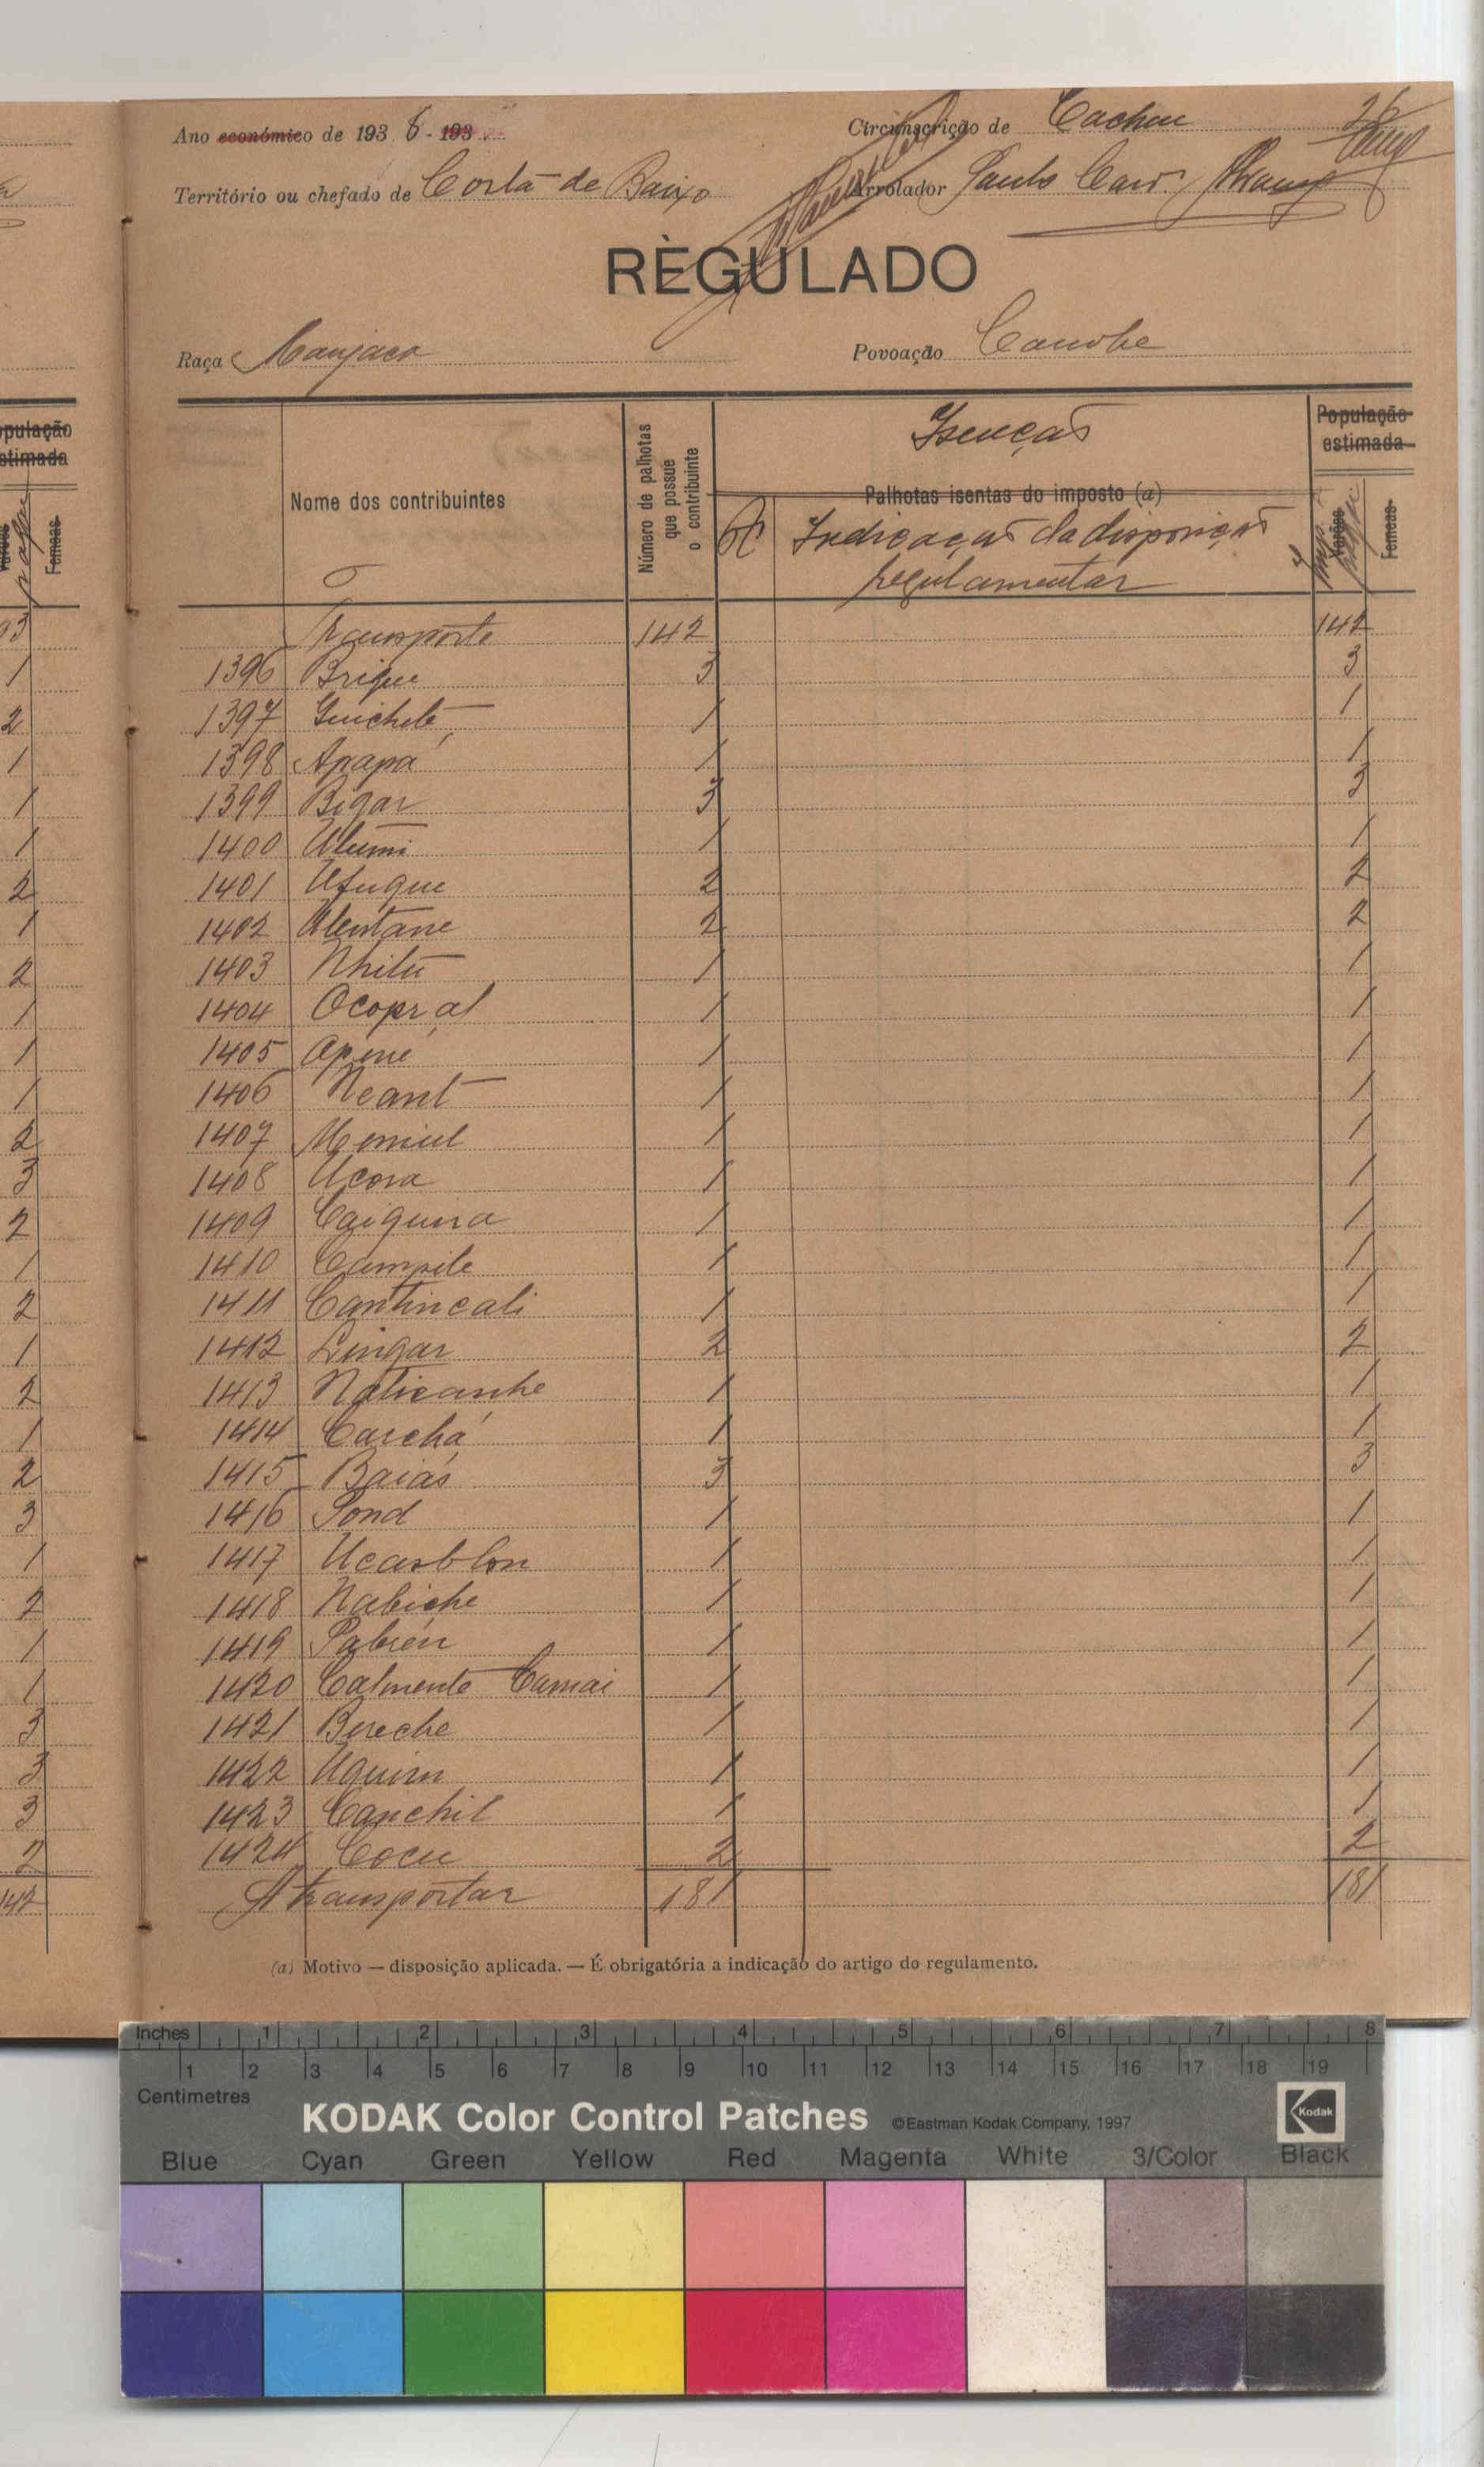 Ano económico de 193 6 - 193
Circunscrição de Cacheu
26
Território ou chefado de Costa de Baixo
Arrolador Paulo
REGULADO
Raça Manjaca
Povoação Canobe
Nome dos contribuintes
Número de palhotas que possue o contribuinte
Isenças
Palhotas isentas do imposto (a)
Indicaças da disposiças
regulamentar
População estimada
Varões
Femeas
pulação
stimada
Femeas
Transporte 142 142
1396 Brique 3 3
1397 Guichete 1 1
1398 Apapá 1 1
1399 Bigar 3 3
1400 Ulumi 1 1
1401 Ufuque 2 2
1402 Ulentane 2 2
1403 Nhilu 1 1
1404 Ocopral 1 1
1405 Apené 1 1
1406 Neant 1 1
1407 Momiul 1 1
1408 Ucova 1 1
1409 Caiguna 1 1
1410 Campile 1 1
1411 Cantincali 1 1
1412 Lingar 2 2
1413 Naticanhe 1 1
1414 Carchá 1 1
1415 Baiás 3 3
1416 Pond 1 1
1417 Ucasblon 1 1
1418 Nabiche 1 1
1419 Pabién 1 1
1420 Calmente Camai 1 1
1421 Bureche 1 1
1422 Uquim 1 1
1423 Canchil 1 1
1424 Cocu 2 2
A transportar 181 181
(a) Motivo — disposição aplicada. — É obrigatória a indicação do artigo do regulamento.
Inches 1 2 3 4 5 6 7 8
1 2 3 4 5 6 7 8 9 10 11 12 13 14 15 16 17 18 19
Centimetres
KODAK Color Control Patches ©Eastman Kodak Company, 1997 Kodak
Blue Cyan Green Yellow Red Magenta White 3/Color Black